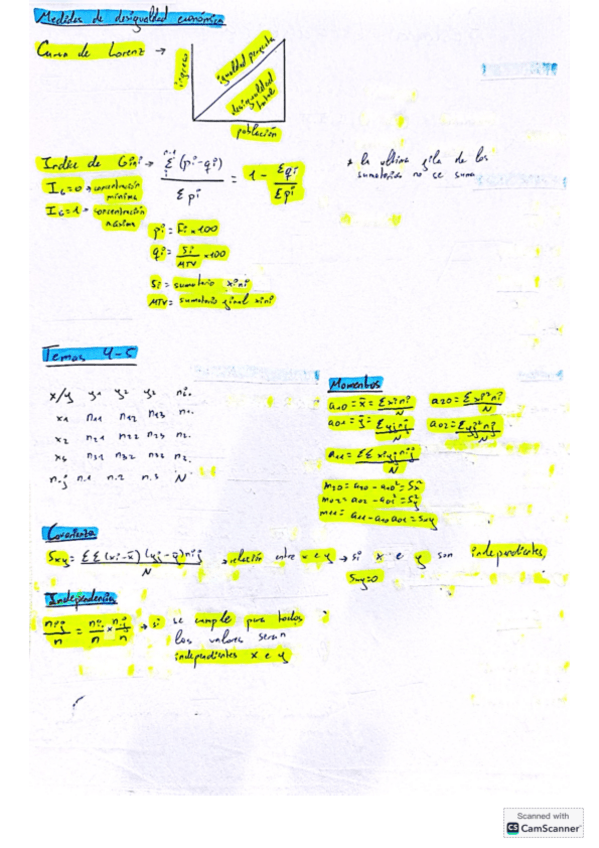 Medidas de desigualdad económica
Curva de Lorenz →
ingreso
igualdad perfecta
desigualdad total
población
Indice de Gini → n-1 Σ i (pi-qi) / Σ pi = 1 - Σqi / Σpi
* la ultima fila de los
sumatorios no se suma
IG=0 → concentración mínima
IG=1 → concentración máxima
pi = Fi x 100
qi = Si / MTV x 100
Si = sumatorio xini
MTV = sumatorio final xini
Temas 4-5
x/y y1 y2 y2 ni.
x1 n11 n12 n13 n1.
x2 n21 n22 n23 n2.
n31 n32 n33
n.j n.1 n.2 n.3 N
Momentos
a10 = x̄ = Σxini / N
a20 = Σxi²ni / N
a01 = ȳ = Σyjnj / N
a02 = Σyj²nj / N
a11 = ΣΣ xiyjnij / N
m20 = a20 - a10² = Sx²
m02 = a02 - a01² = Sy²
m11 = a11 - a10a01 = Sxy
Covarianza
Sxy = ΣΣ (xi-x̄) (yj-ȳ) nij / N → relación entre x e y → si x e y son independientes
Sxy=0
Independencia
nij / n = ni. / n x n.j / n → si se cumple para todos
los valores seran
independientes x e y
Scanned with
CS CamScanner